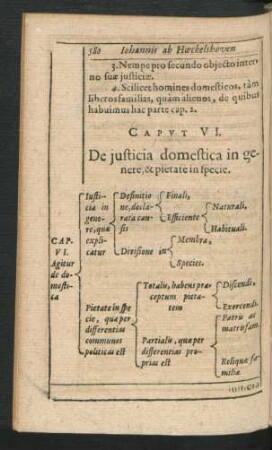 580 Iohannis ab Hœckelshoven
3. Nempe pro secundo objecto inter
no suæ justiciæ.
4. Scilicet homines domesticos, tàm
liberos familias, quàm alienos, de quibus
habuimus hac parte cap. 2.
CAPVT VI.
De justicia domestica in ge-
nere, & pietate in specie.
CAP.
VI.
Agitur
de do-
mesti-
ca
Iusti-
cia in
gene-
re, quæ
expli-
catur
Definitio
ne, decla-
rata cau-
sis
Finali,
Efficiente
Naturali,
Habituali.
Divisione in
Membra,
Species.
Pietate in spe
cie, quæ per
differentias
communes
politicas est
Totalis, habens præ
ceptum pieta-
tem
Discendi,
Exercendi.
Partialis, quæ per
differentias pro-
prias est
Patris ac
matrisfam.
Reliquæ fa-
miliæ